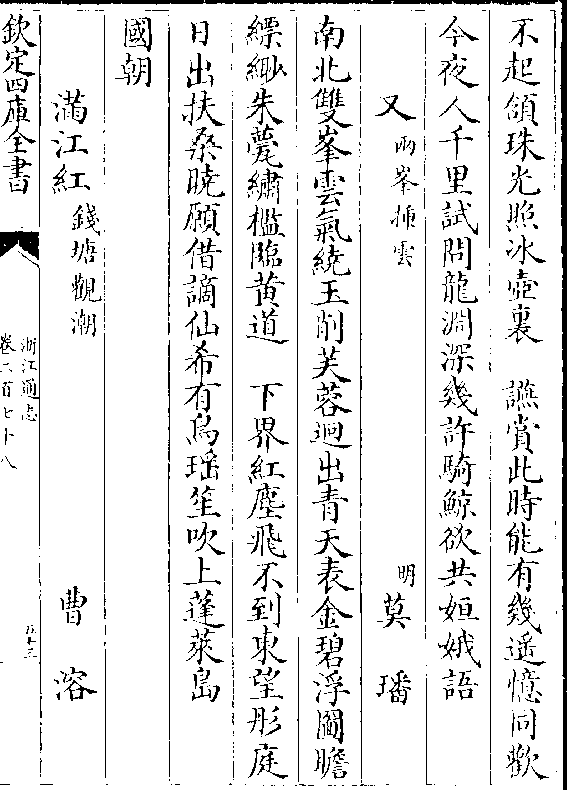 不起頷珠光照冰壺裏　讌賞此時能有幾遥憶同歡
今夜人千里試問龍淵深幾許騎鯨欲共姮娥語
又兩峯挿雲　明莫璠
南北雙峯雲氣繞玉削芙蓉迥出青天表金碧浮圖瞻
縹緲朱甍繡檻臨黄道　下界紅塵飛不到東望彤庭
日出扶桑曉願借謫仙希有鳥瑶笙吹上蓬萊島
國朝
滿江紅錢塘觀潮　曹溶
欽定四庫全書
浙江通志
卷二百七十八
五十三